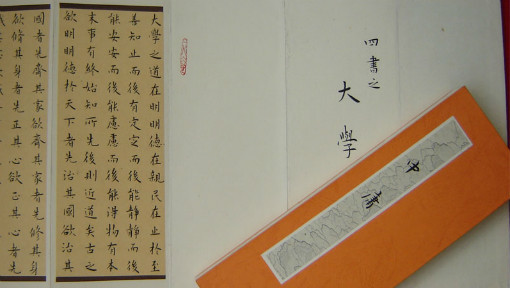 四書之
大學
中庸
大學之道在明明德在親民在止於至
善知止而後有定定而後能靜靜而後
能安安而後能慮慮而後能得物有本
末事有終始知所先後則近道矣古之
欲明明德於天下者先治其國欲治其
國者先齊其家欲齊其家者先修其身
欲修其身者先正其心欲正其心者先